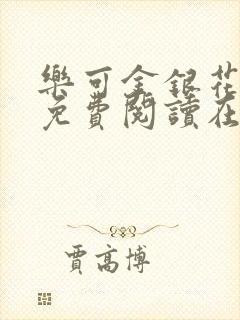 樂可金銀花
免費閱讀在
賈高博